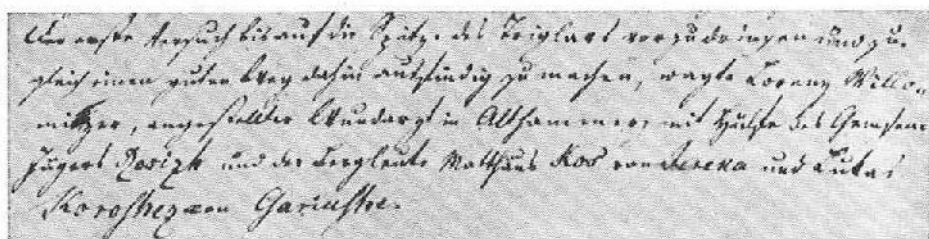 Der erste Versuch bis auf die Spitze des Triglavs vorzudringen und zu-
gleich einen guten Weg dahin ausfindig zu machen, wagte Lorenz Willo-
mitzer, angestellter Wundarzt in Althammer, mit Hülfe des Gemsen-
Jägers Rosizh und der Bergleute Matthäus Kos von Jereka und Lukas
Koroshez von Gariushe.